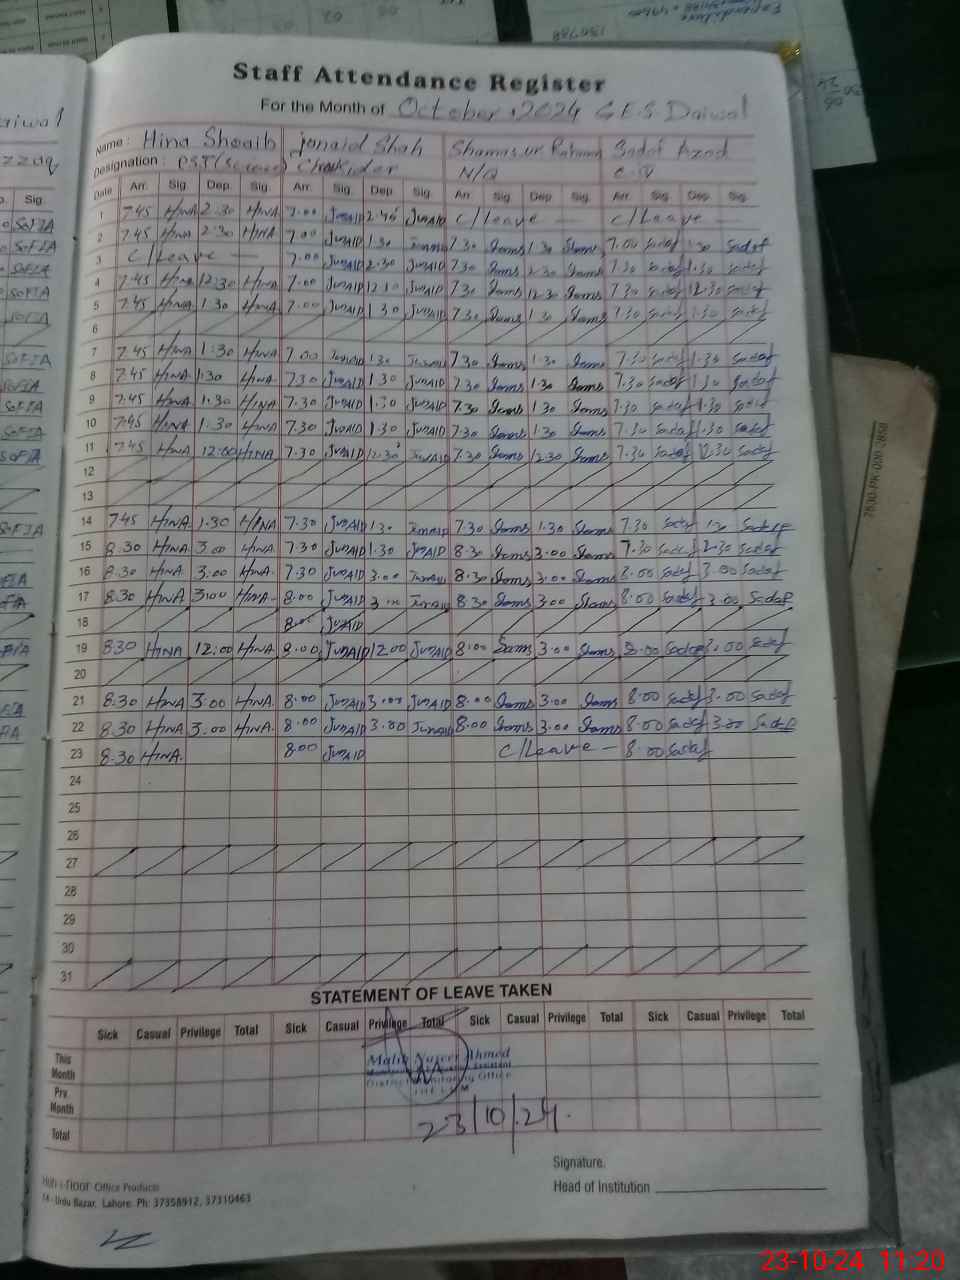 Staff Attendance Register
For the Month of October, 2024 G.E.S. Daiwal
Name: Hina Shoaib Junaid Shah Shamas ur Rahman Sadaf Azad
Designation: PST (Science) Chokidar N/Q C.IV
Date Arr. Sig. Dep. Sig. Arr. Sig. Dep Sig. Arr Sig. Dep Sig. Arr Sig. Dep Sig.
1 7.45 HINA 2:30 HINA 7.00 JUNAID 2.45 JUNAID C/Leave — C/Leave —
2 7.45 HINA 2:30 HINA 7.00 JUNAID 1.30 JUNAID 7.30 Shams 1.30 Shams 7.00 Sadaf 1.30 Sadaf
3 C/Leave — 7.00 JUNAID 2.30 JUNAID 7.30 Shams 2.30 Shams 7.30 Sadaf 1.30 Sadaf
4 7.45 HINA 12:30 HINA 7.00 JUNAID JUNAID 7.30 Shams 12.30 Shams 7.30 Sadaf 12.30 Sadaf
5 7.45 HINA 1:30 HINA 7.00 JUNAID 1.30 JUNAID 7.30 Shams 1.30 Shams 7.30 Sadaf 1.30 Sadaf
6
7 7.45 HINA 1:30 HINA 7.00 JUNAID 1.30 JUNAID 7.30 Shams 1.30 Shams 7.30 Sadaf 1.30 Sadaf
8 7.45 HINA 1:30 HINA 7.30 JUNAID 1.30 JUNAID 7.30 Shams 1.30 Shams 7.30 Sadaf 1.30 Sadaf
9 7.45 HINA 1.30 HINA 7.30 JUNAID 1.30 JUNAID 7.30 Shams 1.30 Shams 7.30 Sadaf 1.30 Sadaf
10 7.45 HINA 1:30 HINA 7.30 JUNAID 1.30 JUNAID 7.30 Shams 1.30 Shams 7.30 Sadaf 1.30 Sadaf
11 7.45 HINA 12:00 HINA 7.30 JUNAID 12.30 JUNAID 7.30 Shams 12.30 Shams 7.30 Sadaf 12.30 Sadaf
12
13
14 7.45 HINA 1.30 HINA 7.30 JUNAID 1.30 JUNAID 7.30 Shams 1.30 Shams 7.30 Sadaf 1.30 Sadaf
15 8.30 HINA 3.00 HINA 7.30 JUNAID 1.30 JUNAID 8.30 Shams 3.00 Shams 7.30 Sadaf 2.30 Sadaf
16 8.30 HINA 3.00 HINA 7.30 JUNAID 3.00 JUNAID 8.30 Shams 3.00 Shams 8.00 Sadaf 3.00 Sadaf
17 8.30 HINA 3:00 HINA 8.00 JUNAID 3.00 JUNAID 8.30 Shams 3.00 Shams 8.00 Sadaf 3.00 Sadaf
18 8.00 JUNAID
19 8.30 HINA 12:00 HINA 8.00 JUNAID 12.00 JUNAID 8.00 Shams 3.00 Shams 8.00 Sadaf 3.00 Sadaf
20
21 8.30 HINA 3:00 HINA 8.00 JUNAID 3.00 JUNAID 8.00 Shams 3.00 Shams 8.00 Sadaf 3.00 Sadaf
22 8.30 HINA 3.00 HINA 8.00 JUNAID 3.00 JUNAID 8.00 Shams 3.00 Shams 8.00 Sadaf 3.00 Sadaf
23 8.30 HINA. 8.00 JUNAID C/Leave — 8.00 Sadaf
24
25
26
27
28
29
30
31
STATEMENT OF LEAVE TAKEN
Sick Casual Privilege Total Sick Casual Privilege Total Sick Casual Privilege Total Sick Casual Privilege Total
This Month
Prv. Month
Total
Malik Naseer Ahmed
District Monitoring Office
JHELUM
23/10/24.
Signature.
Head of Institution
Office Products
14-Urdu Bazar, Lahore. Ph: 37358912, 37310463
23-10-24 11:20